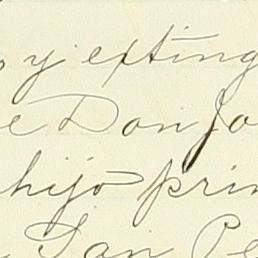 y esting
e Don Jo
hijo prim
San Pe